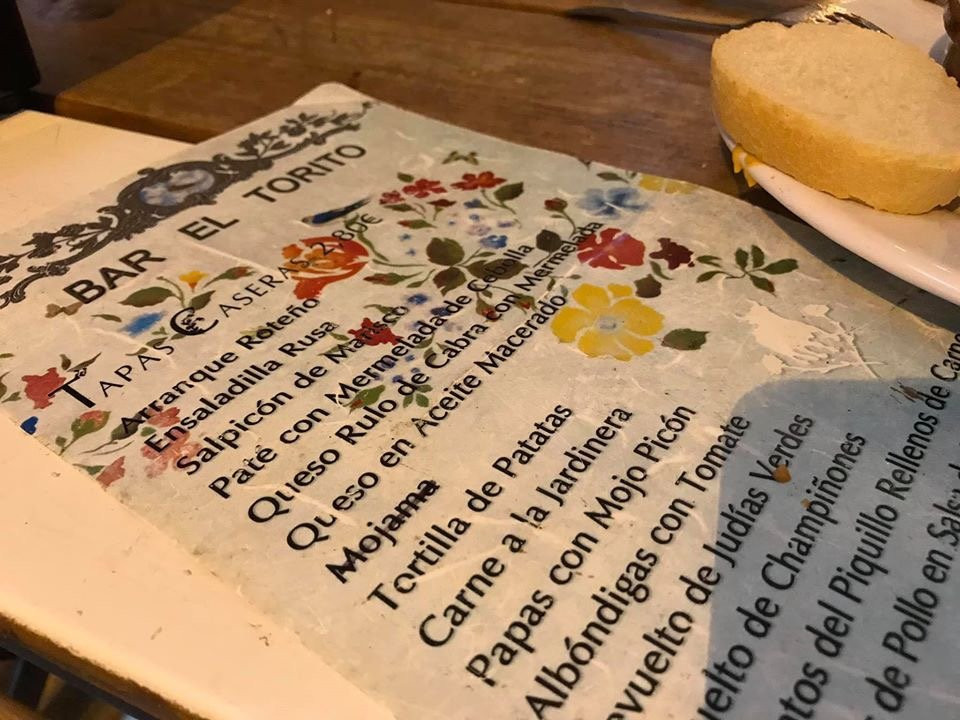 BAR EL TORITO
TAPAS CASERAS 2,80€
Arranque Roteño
Ensaladilla Rusa
Salpicón de Marisco
Paté con Mermelada de Cebolla
Queso Rulo de Cabra con Mermelada
Queso en Aceite Macerado
Mojama
Tortilla de Patatas
Carne a la Jardinera
Papas con Mojo Picón
Albóndigas con Tomate
evuelto de Judías Verdes
uelto de Champiñones
tos del Piquillo Rellenos de
de Pollo en Salsa